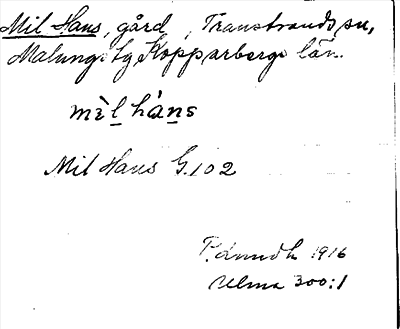 Mil Hans, gård, Transtrands sn,
Malungs tg Kopparbergs län.
mìl hàns
Mil Hans G.102
1916
Ulma 300:1